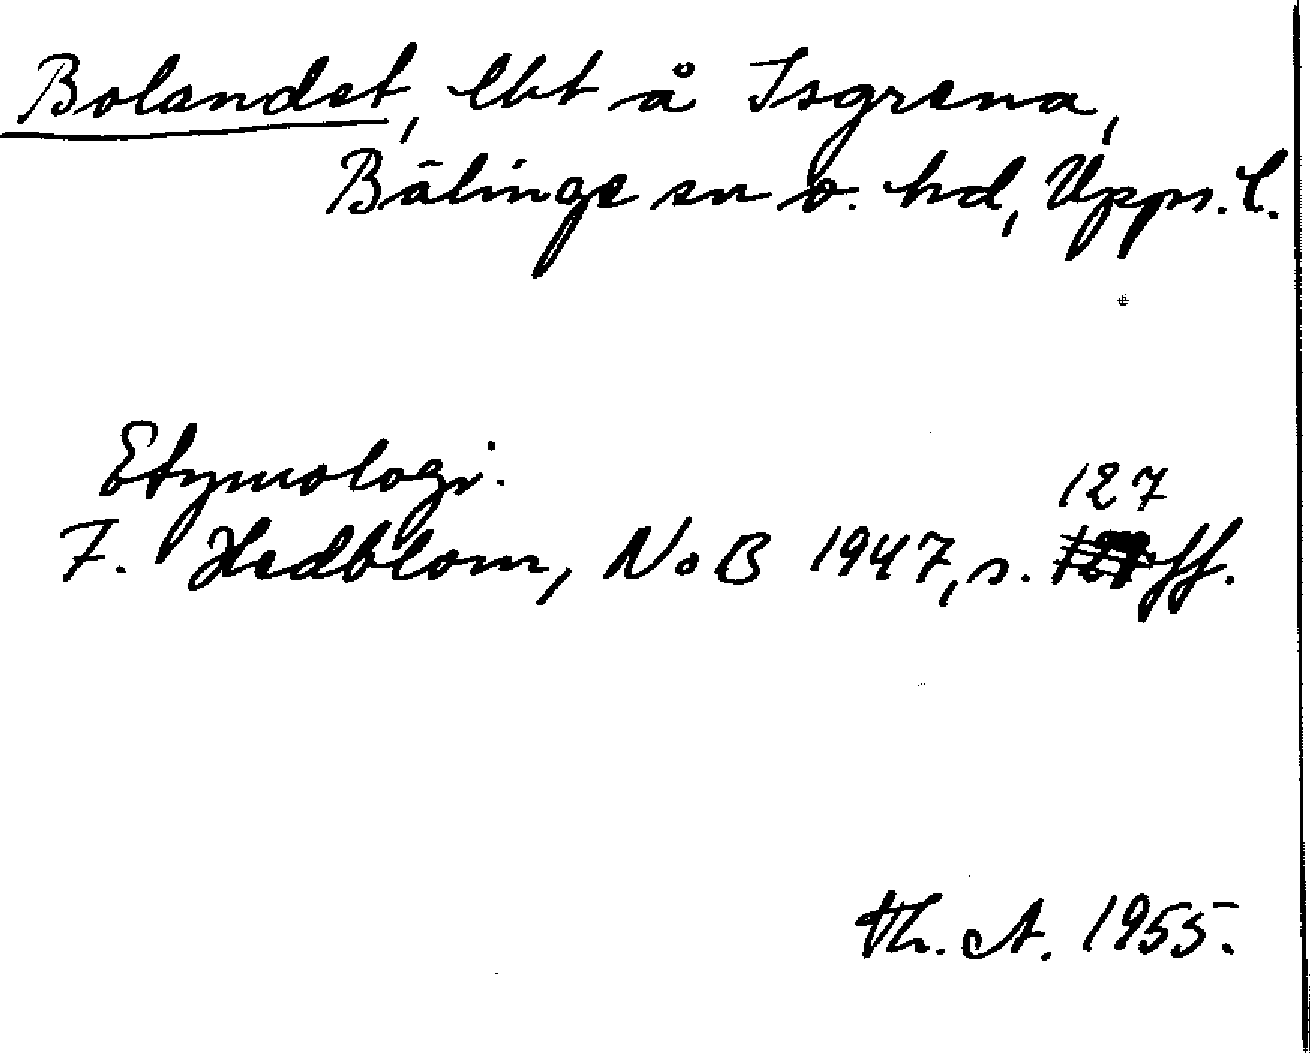 Bolandet, lbt å Isgrena,
Bälinge sn o. hd, Upps. l.
Etymologi.
127
F. Hedblom, NoB 1947, s. ff.
Th. A. 1955.